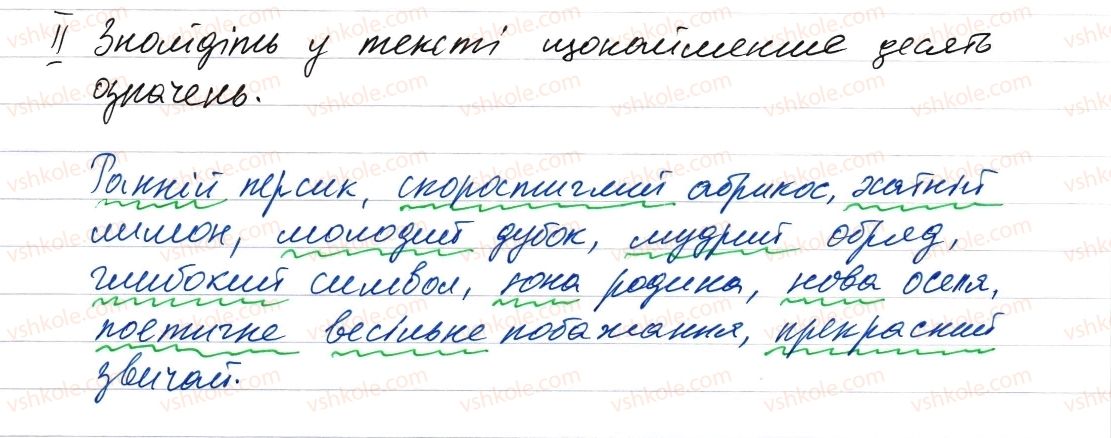 ІІ Знайдіть у тексті щонайменше десять
означень.
Ранній персик, скоростиглий абрикос, хатній
лимон, молодий дубок, мудрий обряд,
глибокий символ, юна родина, нова оселя,
поетичне весільне побажання, прекрасний
звичай.